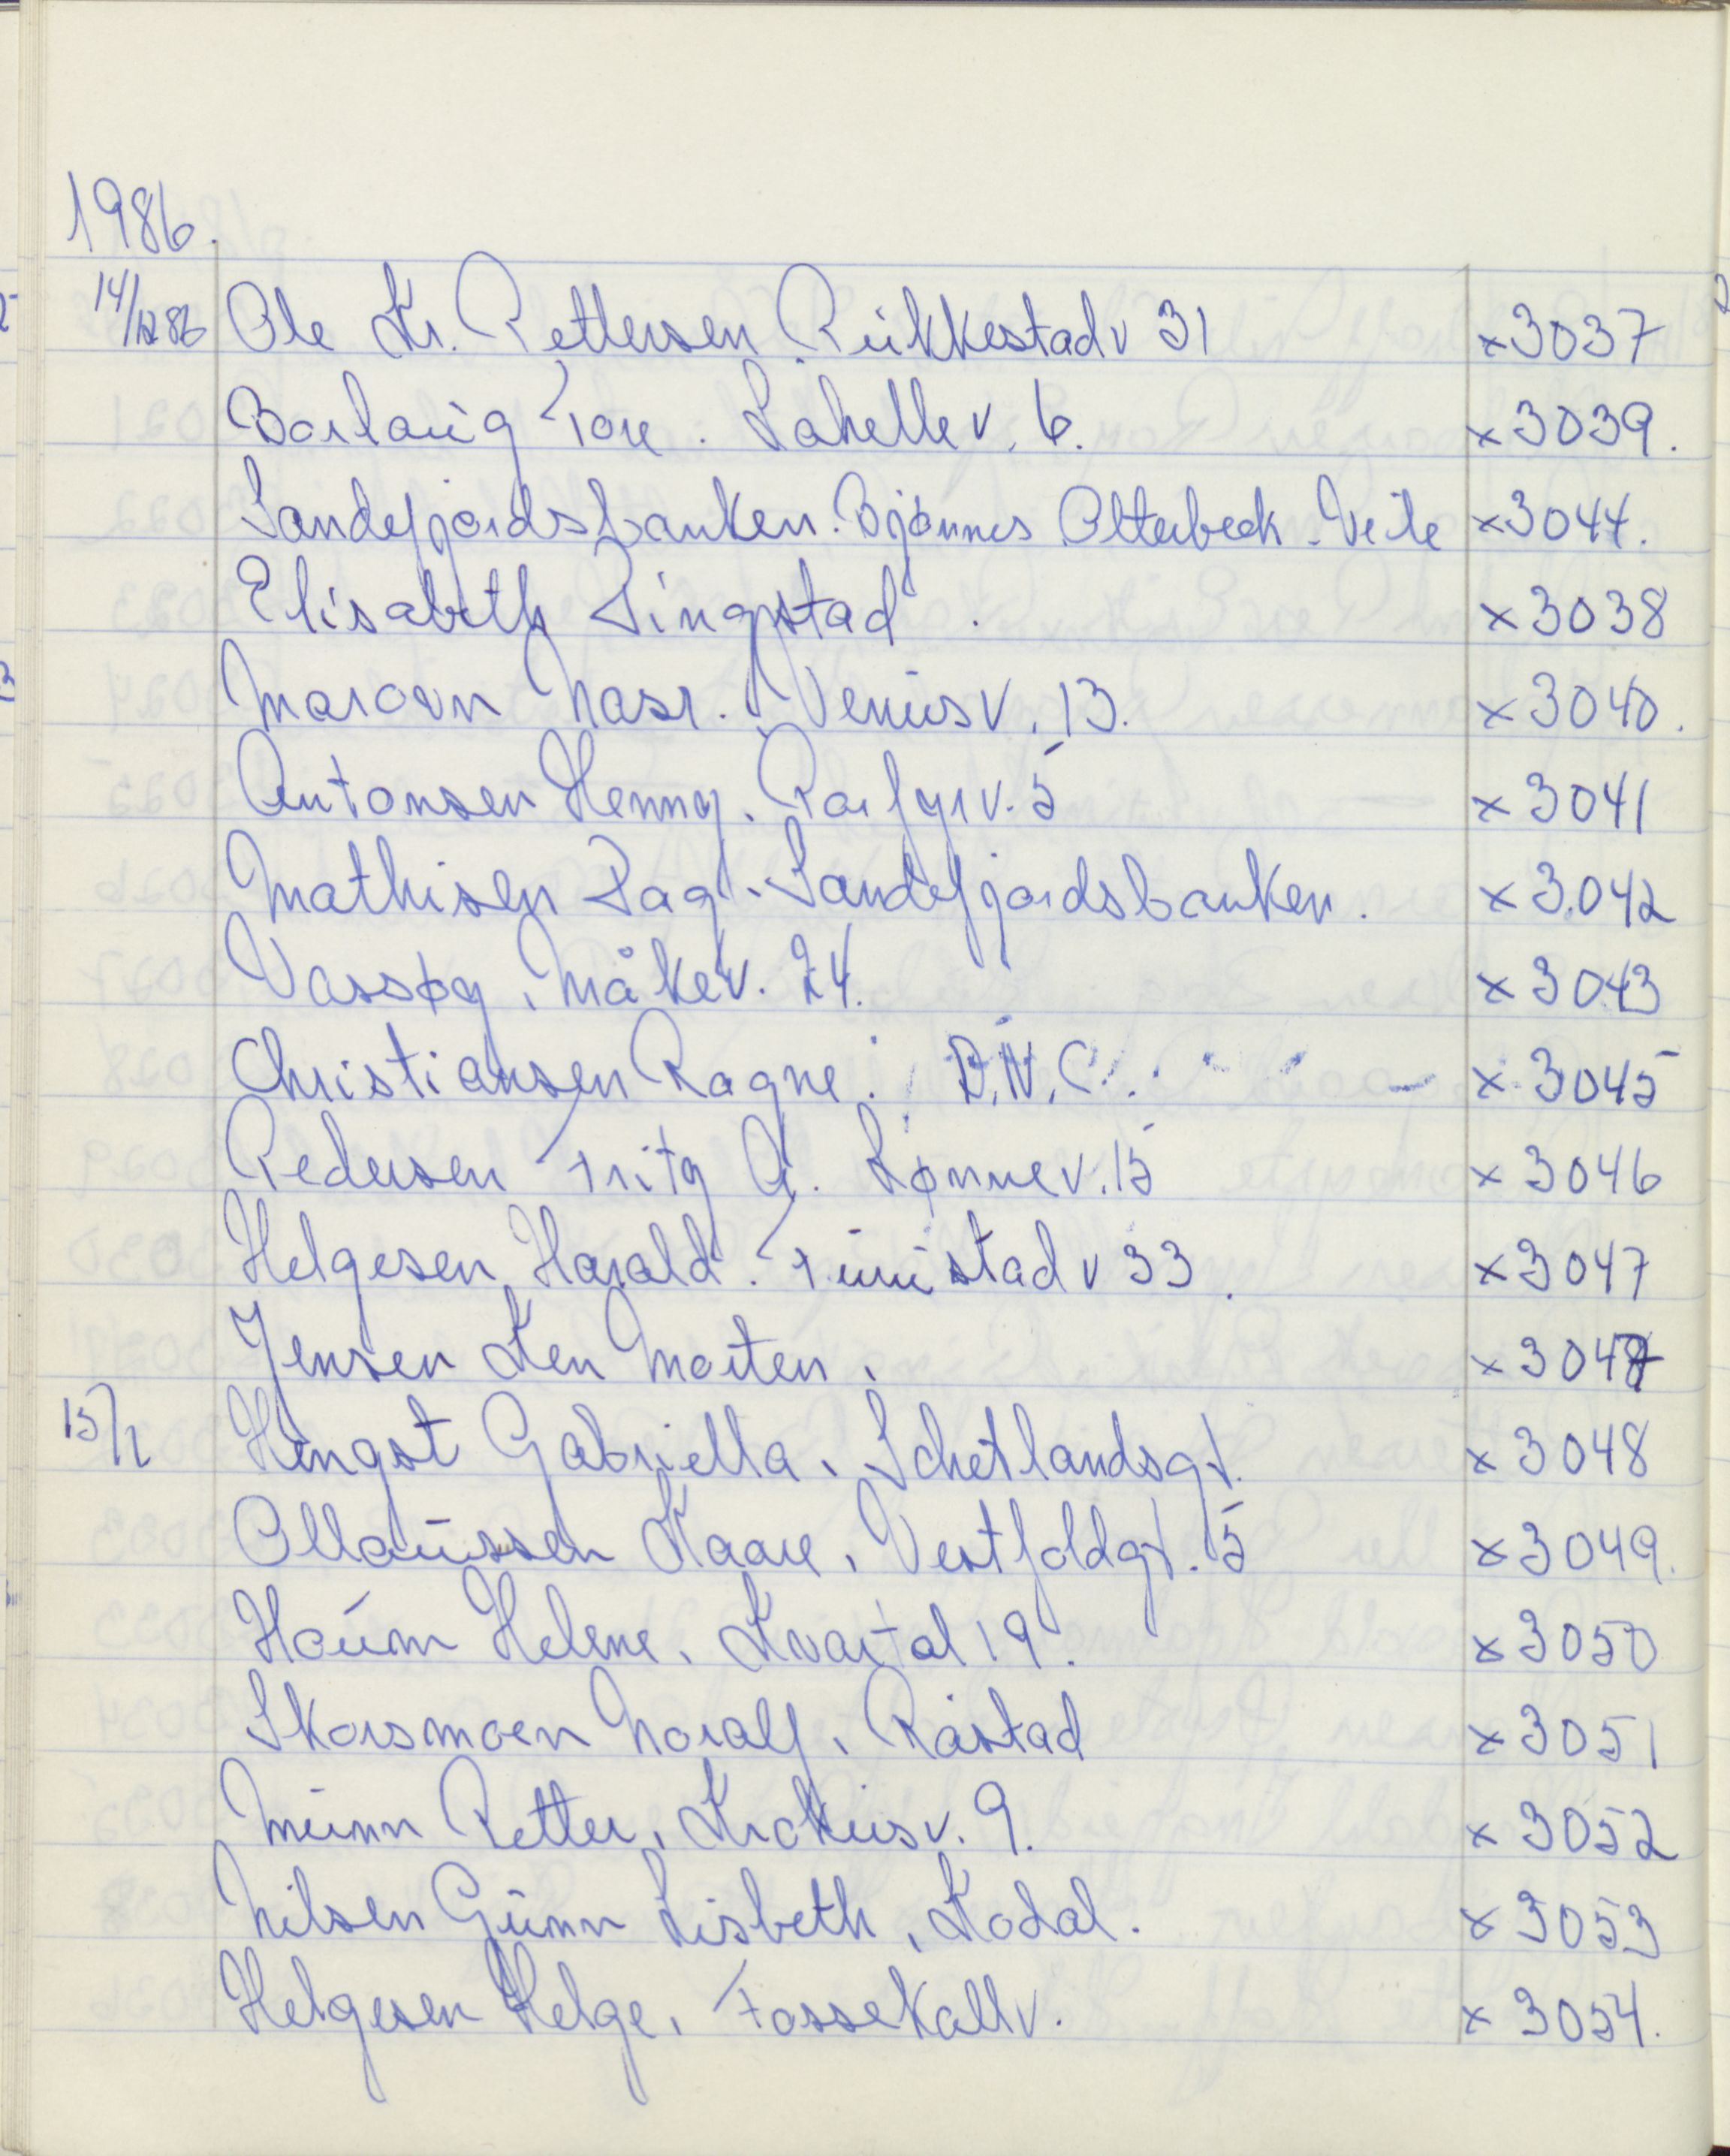 1986.
14/1 86 Ole Kr. Pettersen Pukkestadv 31 x3037
Barlaug Tore. Lahellev. 6. x3039.
Sandefjordsbanken. Bjønnes Otterbeck-Veile x3044.
Elisabeth Lingstad. x3038
Marovn Nasr. Venusv. 13. x3040.
Antonsen Henny. Parfyrv. 5 x3041
Mathisen Dag. Sandefjordsbanken. x3042
Vassøy, Måkev. 24. x3043
Christiansen Ragne. D.N.C. x3045
Pedersen Fritz A. Lønnev. 15 x3046
Helgesen Harald. Furustadv 33. x3047
Jensen Ken Morten. x3047
15/1 Hengst Gabriella, Schetlandsgt. x3048
Ollaussen Kaare, Vestfoldgt. 5 x3049.
Haum Helene, Kvartal 19. x3050
Skorsmoen Noralf, Råstad x3051
Munn Petter, Krokusv. 9. x3052
Nilsen Gunn Lisbeth, Kodal. x3053
Helgesen Helge, Fossekallv. x3054.